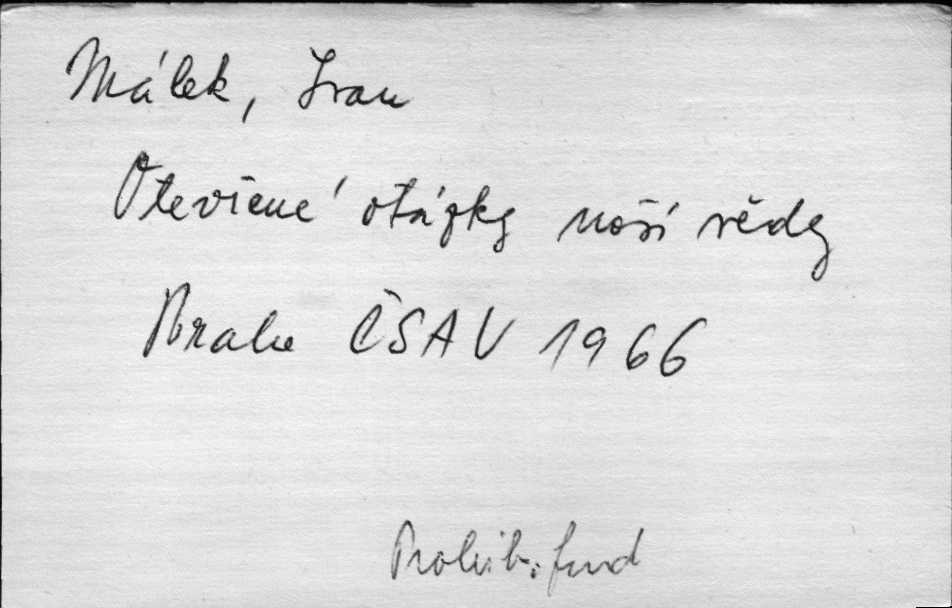 Málek, Ivan
Otevřené otázky naší vědy
Praha ČSAV 1966
Prohib. fond